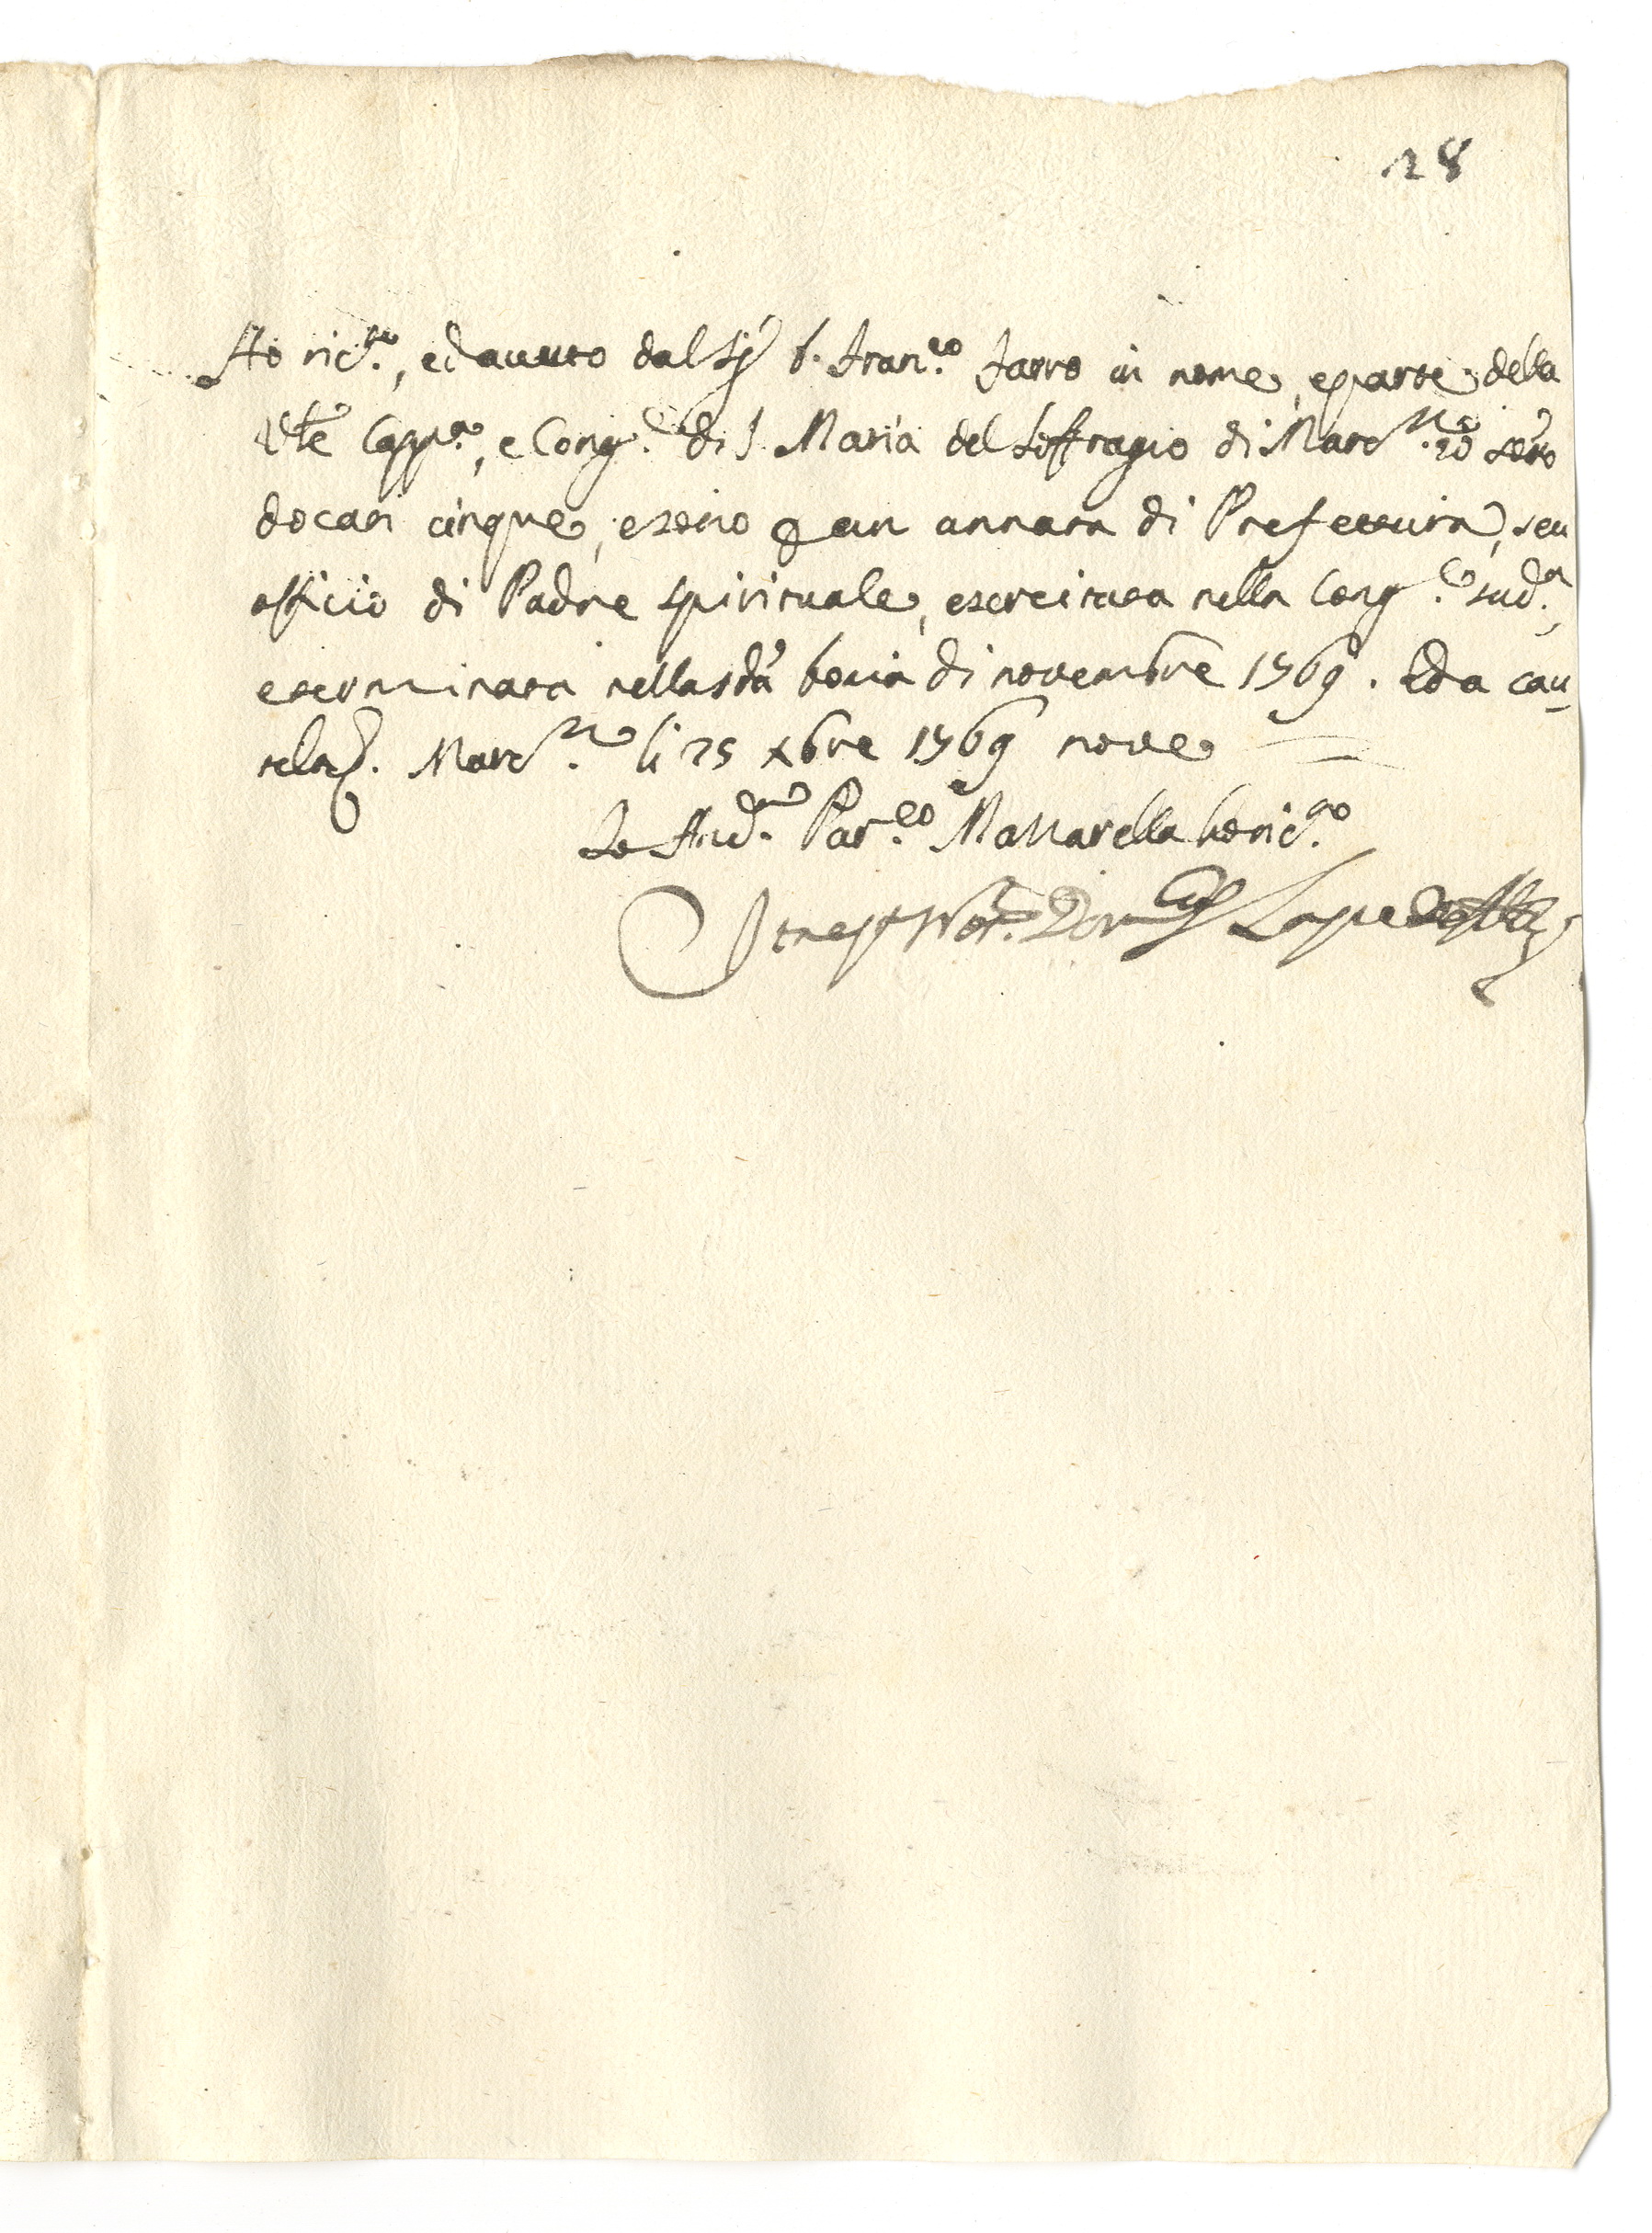 28
Ho ric.to, ed avuto dal Sig.r D. Fran.co Iarro in nome, e parte della
Ve.le Capp.a, e Cong.e di S. Maria del Soffragio di Marc.se
docati cinque, e sono p un annata di Prefettura, seu
officio di Padre Spirituale, esercitata nella Cong.e sud.a,
e terminata nella sd.a di novembre 1769. Ed a cau-
tela. Marc.se li 25 xbre 1769 nove
Io And.a Par.co Mattarella ho ric.to